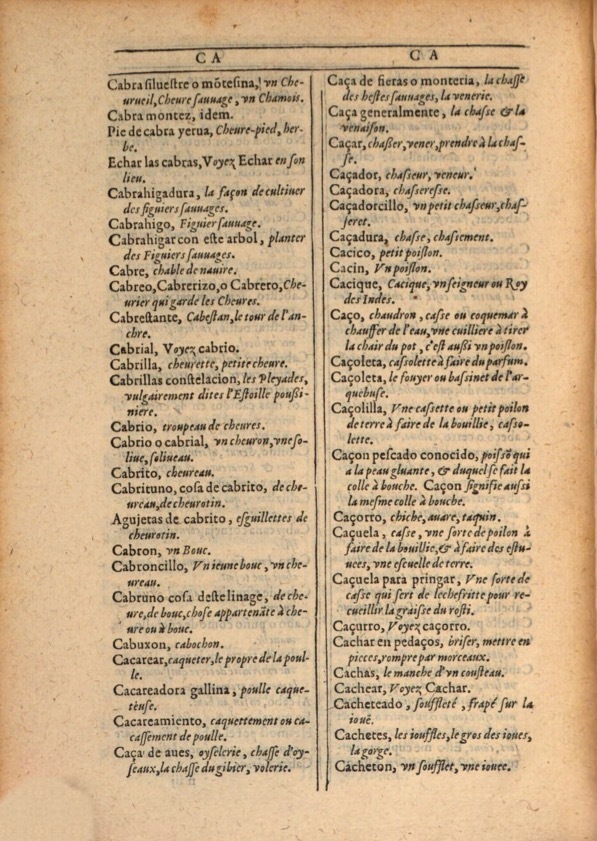 C A
Cabra siluestre o mõtesina, vn Che-
ureuil, Cheure sauuage, vn Chamois.
Cabra montez, idem.
Pie de cabra yerua, Cheure-pied, her-
be.
Echar las cabras, Voyez Echar en son
lieu.
Cabrahigadura, la façon de cultiuer
des figuiers sauuages.
Cabrahigo, Figuier sauuage.
Cabrahigar con este arbol, planter
des Figuiers sauuages.
Cabre, chable de nauire.
Cabreo, Cabrerizo, o Cabrero, Che-
urier qui garde les Cheures.
Cabrestante, Cabestan, le tour de l'an-
chre.
Cabrial, Voyez cabrio.
Cabrilla, cheurette, petite cheure.
Cabrillas constelacion, les Pleyades,
vulgairement dites l'Estoille poußi-
niere.
Cabrio, troupeau de cheures.
Cabrio o cabrial, vn cheuron, vne so-
liue, soliueau.
Cabrito, cheureau.
Cabrituno, cosa de cabrito, de che-
ureau, de cheurotin.
Agujetas de cabrito, esguillettes de
cheurotin.
Cabron, vn Bouc.
Cabroncillo, Vn ieune bouc, vn che-
ureau.
Cabruno cosa deste linage, de che-
ure, de bouc, chose appartenãte à che-
ure ou à bouc.
Cabuxon, cabochon.
Cacarear, caqueter, le propre de la poul-
le.
Cacareadora gallina, poulle caque-
teuse.
Cacareamiento, caquettement ou ca-
cassement de poulle.
Caça de aues, oyselerie, chasse d'oy-
seaux, la chasse du gibier, volerie.
C A
Caça de fieras o monteria, la chasse
des bestes sauuages, la venerie.
Caça generalmente, la chasse & la
venaison.
Caçar, chaßer, vener, prendre à la chas-
se.
Caçador, chasseur, veneur.
Caçadora, chasseresse.
Caçadorcillo, vn petit chasseur, chas-
seret.
Caçadura, chasse, chassement.
Cacico, petit poislon.
Cacin, Vn poislon.
Cacique, Cacique, vn seigneur ou Roy
des Indes.
Caço, chaudron, casse ou coquemar à
chauffer de l'eau, vne cuilliere à tirer
la chair du pot, c'est außi vn poislon.
Caçoleta, cassolette à faire du parfum.
Caçoleta, le fouyer ou bassinet de l'ar-
quebuse.
Caçolilla, Vne cassette ou petit poilon
de terre à faire de la bouillie, casso-
lette.
Caçon pescado conocido, poissõ qui
a la peau gluante, & duquel se fait la
colle à bouche. Caçon signifie aussi
la mesme colle à bouche.
Caçorro, chiche, auare, taquin.
Caçuela, casse, vne sorte de poilon à
faire de la bouillie, & à faire des estu-
ues, vne escuelle de terre.
Caçuela para pringar, Vne sorte de
casse qui sert de lechefritte pour re-
cueillir la graisse du rosti.
Caçurro, Voyez caçorro.
Cachar en pedaços, briser, mettre en
pieces, rompre par morceaux.
Cachas, le manche d'vn cousteau.
Cachear, Voyez Cachar.
Cacheteado, souffleté, frapé sur la
ioue.
Cachetes, les iouffles, le gros des ioues,
la gorge.
Cacheton, vn soufflet, vne iouee.